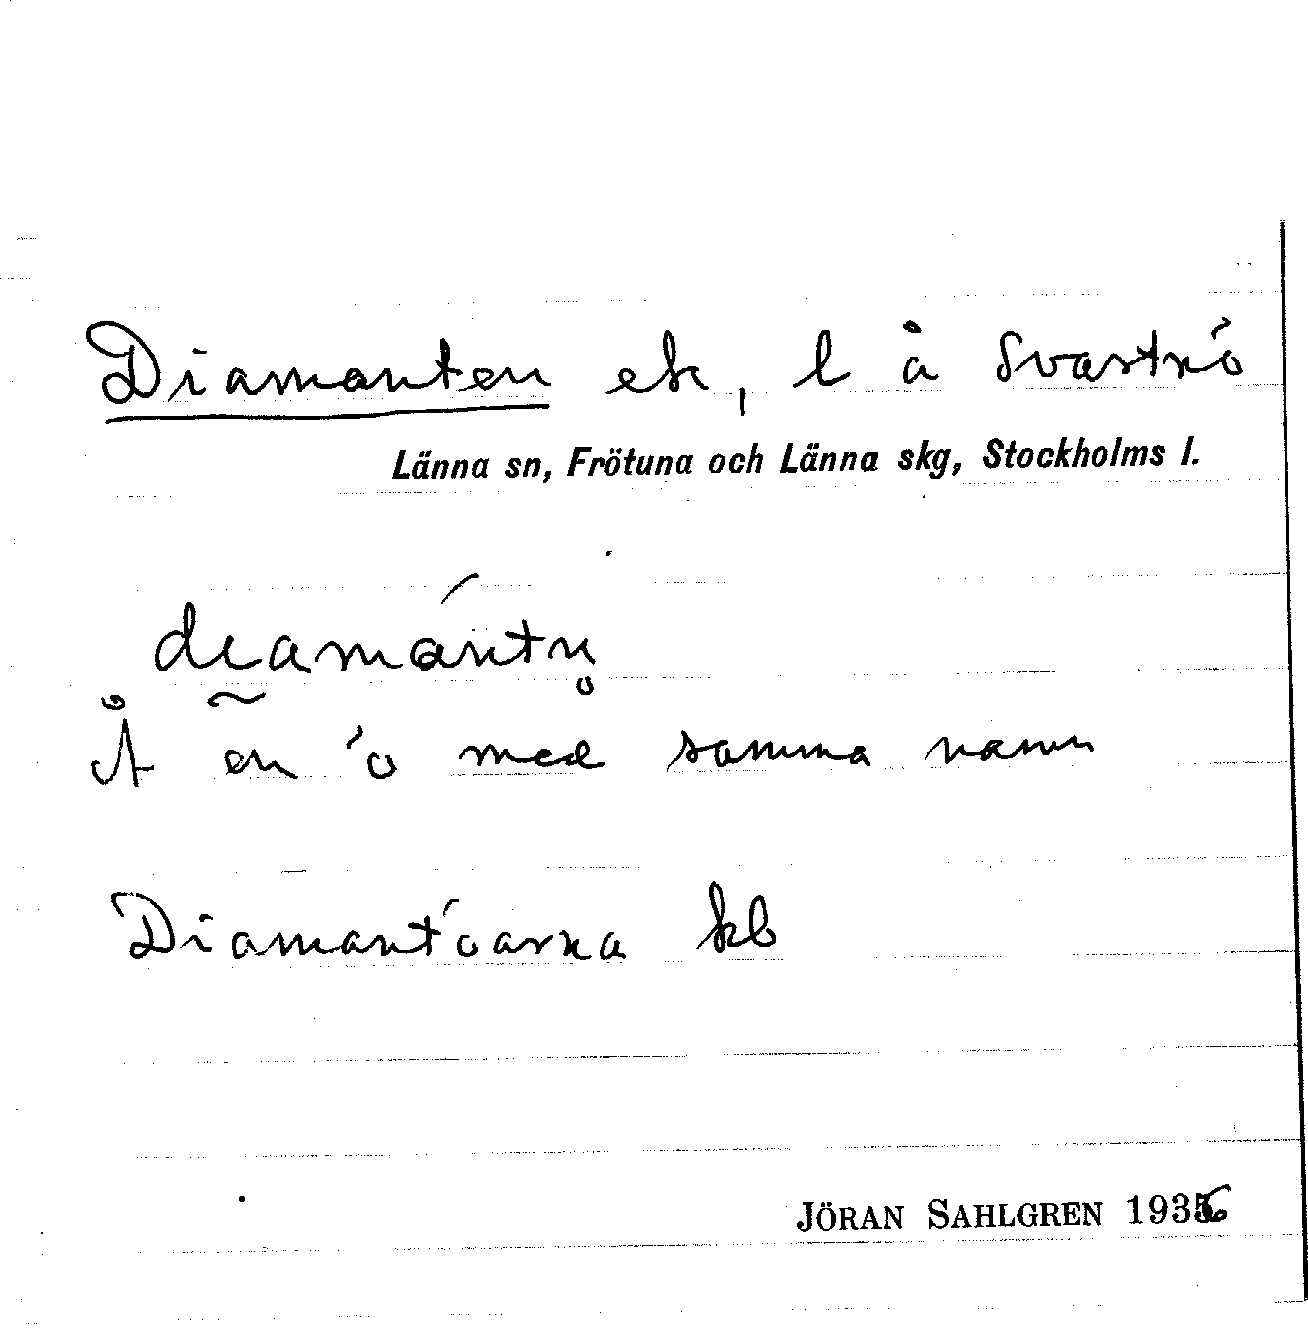 Diamanten ek, l å Svartnö
Länna sn, Frötuna och Länna skg, Stockholms l.
diamántn̥
Å en ö med samma namn
Diamantöarna kb
JÖRAN SAHLGREN 1936